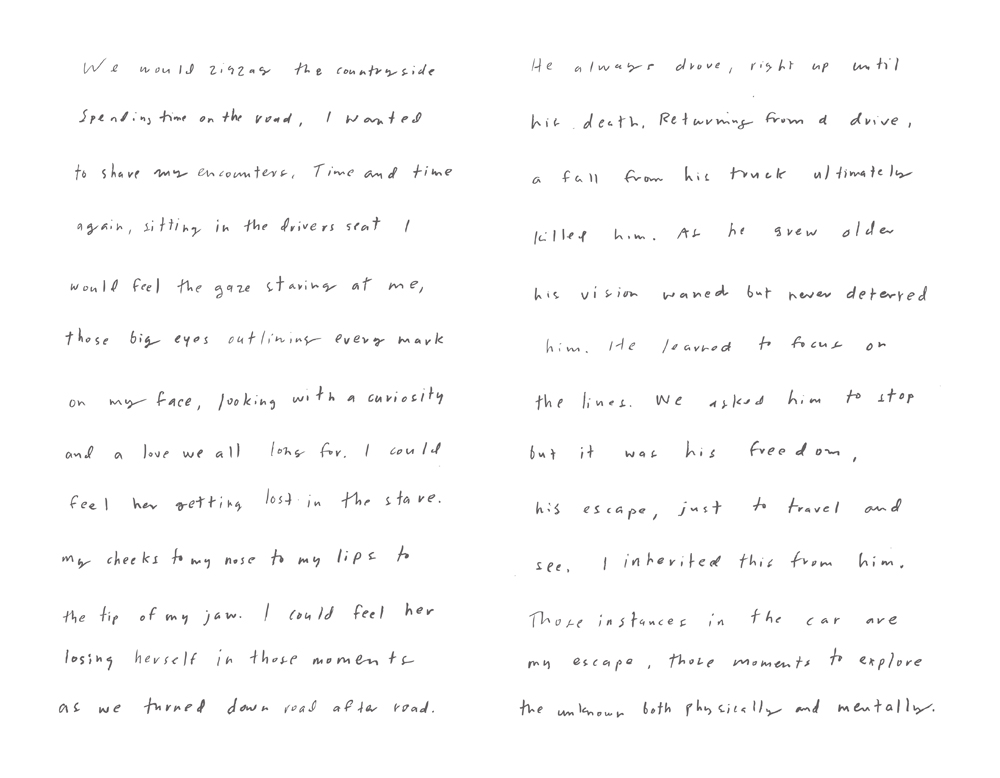 We would zigzag the countryside
spending time on the road, I wanted
to share my encounters. Time and time
again, sitting in the drivers seat I
would feel the gaze staring at me,
those big eyes outlining every mark
on my face, looking with a curiosity
and a love we all long for. I could
feel her getting lost in the stare.
my cheeks to my nose to my lips to
the tip of my jaw. I could feel her
losing herself in those moments
as we turned down road after road.
He always drove, right up until
his death. Returning from a drive,
a fall from his truck ultimately
killed him. As he grew older
his vision waned but never deterred
him. He learned to focus on
the lines. We asked him to stop
but it was his freedom,
his escape, just to travel and
see. I inherited this from him.
Those instances in the car are
my escape, those moments to explore
the unknown both physically and mentally.